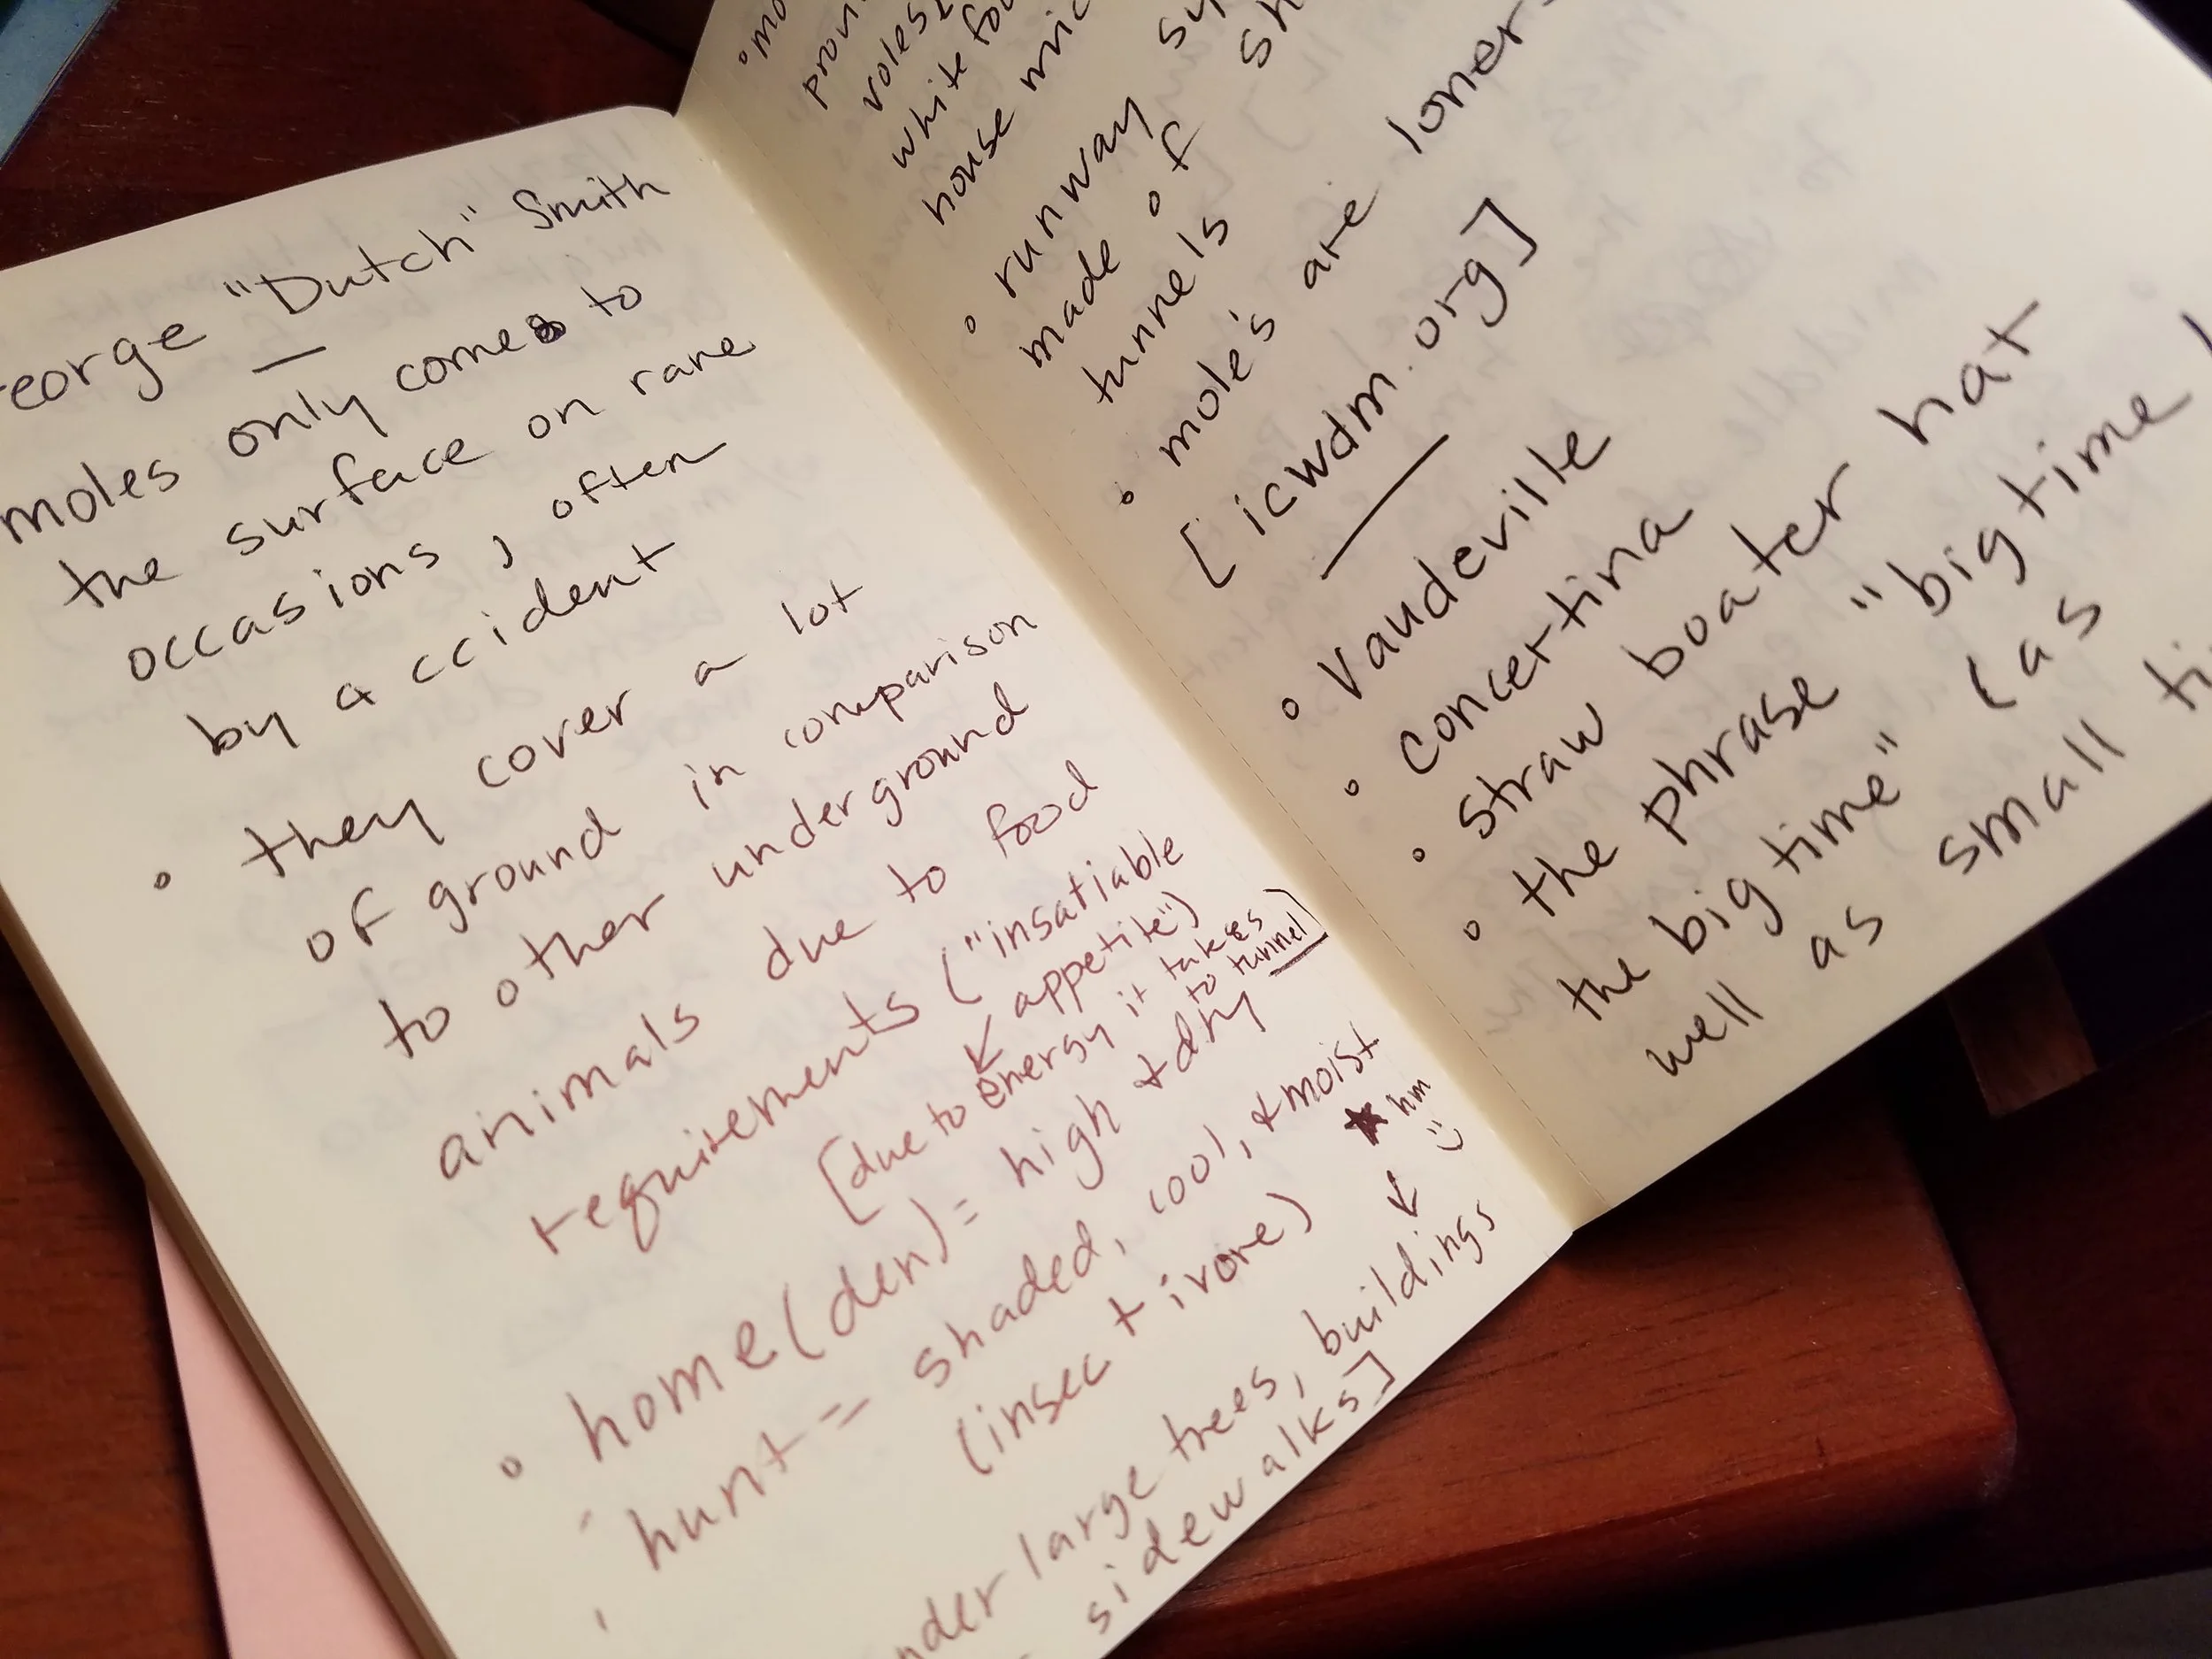 eorge "Dutch" Smith
—
moles only comes to
the surface on rare
occasions, often
by accident
° they cover a lot
of ground in comparison
to other underground
animals due to food
requirements ("insatiable
appetite")
[due to energy it takes
to tunnel]
° home (den) = high + dry
hunt = shaded, cool, + moist
(insectivore)
★ hm
nder large trees, buildings
sidewalks]
house mic
° runway
made of
tunnels
° mole's are loner
[icwdm.org]
° Vaudeville
° Concertina
° Straw boater hat
° the phrase "bigtime
the bigtime" (as
well as small ti